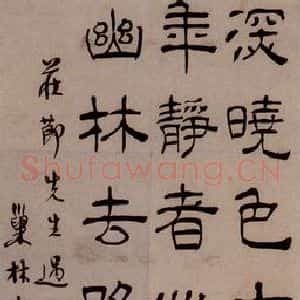 深曉色
年靜者
幽林去
莊節先生過
巢林
Shufawang.CN